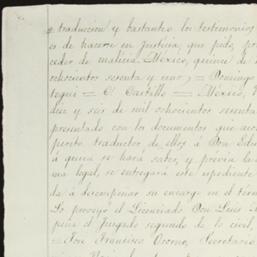 traduccion y bastanteo los testimonios
es de hacerse en Justicia, que pido, pro
ceder de malicia. México, quince de
ochocientos sesenta y uno, = Domingo
tegui = C. Castillo = México,
diez y seis de mil ochocientos sesenta
presentado con los documentos que
perito traductor de ellos á Don
á quien se hará saber, y prévia la
ma legal, se entregará este espediente
da á desempeñar su encargo en el térm
Lo proveyó el Licenciado Don Luis
pina el Juzgado segundo de lo civil,
= José Francisco Osorno, Secretario